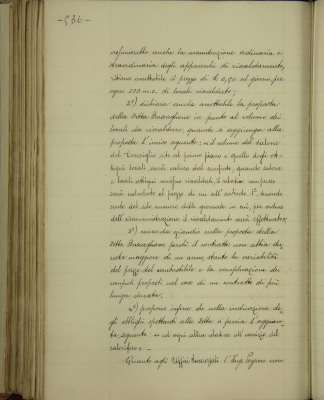 -536-
anche la manutenzione ordinaria e
straordinaria degli apparecchi di riscaldamento,
ritiene accettabile il prezzo di £ 0,50 al giorno per
ogni 100 m.c. di locale riscaldato;
2°) dichiara anche accettabile la proposta
della Ditta in punto al volume dei
locali da riscaldare, quando si aggiunga alla
proposta l'inciso seguente: "il volume del salone
del Consiglio sito al primo piano e quello degli at-
tigui locali sarà calcolato quando salone
e locali attigui risultino riscaldati, il relativo compenso
sarà calcolato al prezzo di cui all'articolo 1° tenendo
conto del solo numero delle giornate in cui, per ordine
dell'Amministrazione il riscaldamento sarà effettuato;
3°) concorda giusta nella proposta della
Ditta perché il contratto non abbia du-
rata maggiore di un anno, stante la variabilità
del prezzo del combustibile e la complicazione dei
compensi proposti nel caso di un contratto di più
lunga durata;
4°) propone infine che nella indicazione de-
gli obblighi spettanti alla Ditta si faccia l'aggiun-
ta seguente: "ed ogni altro relativo all'esercizio del
calorifero".
Quanto agli Uffici l'Ing. non